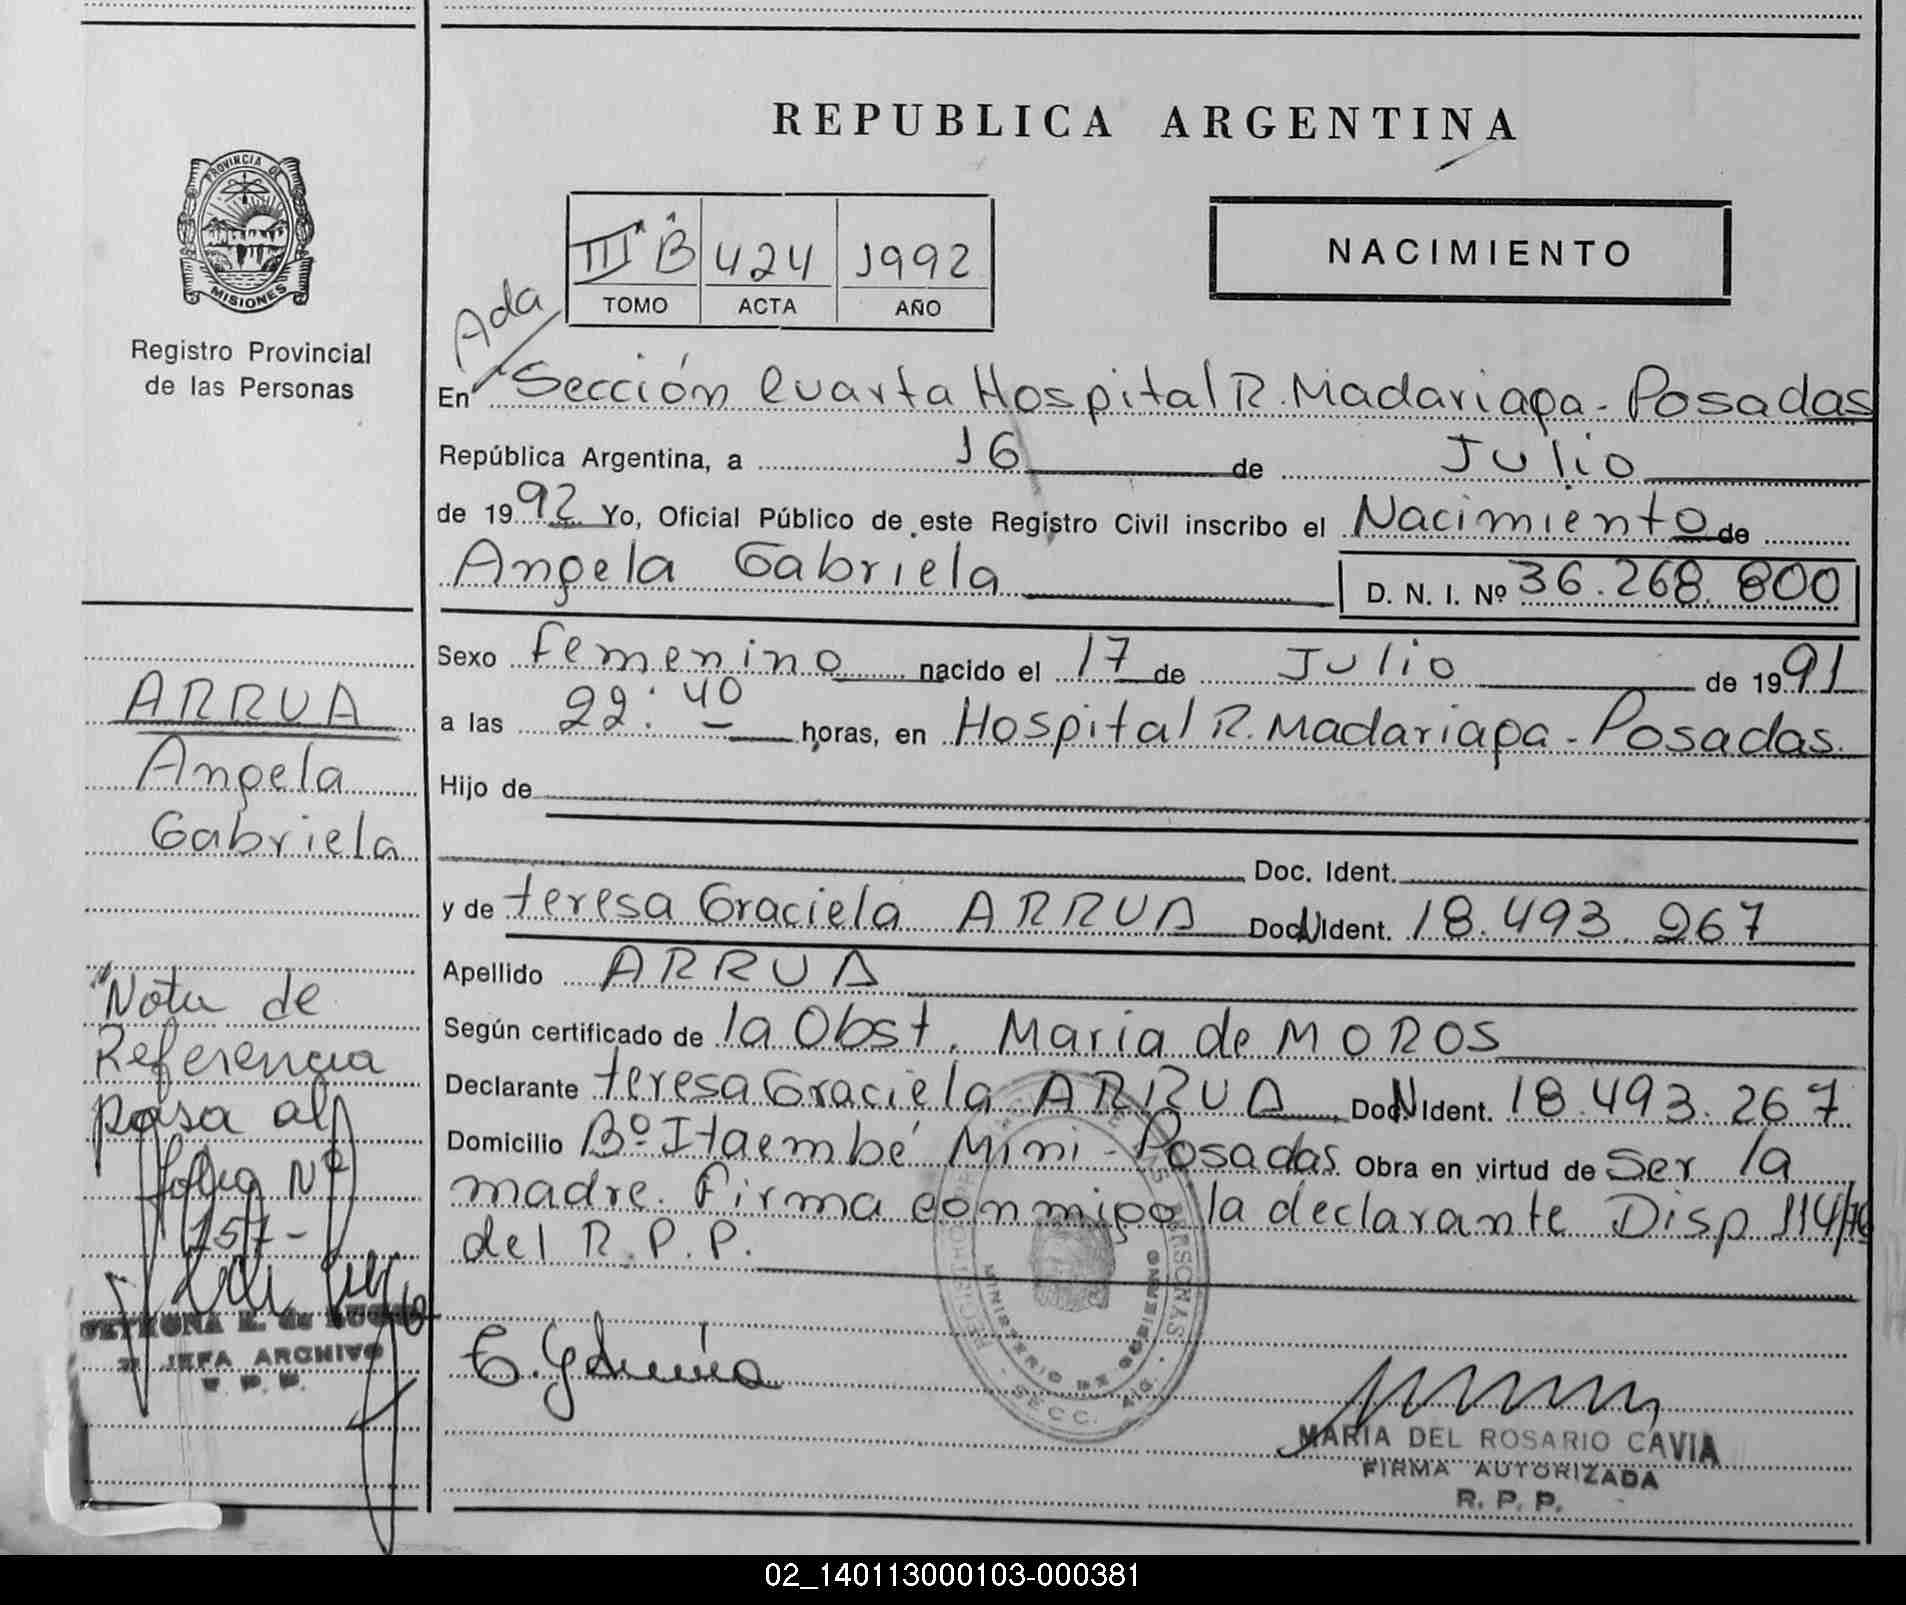 REPUBLICA ARGENTINA
PROVINCIA DE
MISIONES
Registro Provincial
de las Personas
III B 424 1992
TOMO ACTA AÑO
NACIMIENTO
Ada
En Sección Cuarta Hospital R. Madariaga - Posadas
República Argentina, a 16 de Julio
de 1992 Yo, Oficial Público de este Registro Civil inscribo el Nacimiento de
Angela Gabriela D. N. I. Nº 36.268.800
Sexo femenino nacido el 17 de Julio de 1991
a las 22:40 horas, en Hospital R. Madariaga - Posadas
Hijo de
Doc. Ident.
y de teresa Graciela ARRUA Doc. Ident. 18.493.267
Apellido ARRUA
Según certificado de la Obst. Maria de MOROS
Declarante teresa Graciela ARRUA Doc. Ident. 18.493.267
Domicilio Bº Itaembé Mini - Posadas Obra en virtud de Ser la
madre. Firma conmigo la declarante Disp 114/76
del R.P.P.
ARRUA
Angela
Gabriela
"Nota de
Referencia
pasa al
folio Nº
157-
JEFA ARCHIVO
MINISTERIO DE GOBIERNO
SECC.
MARIA DEL ROSARIO CAVIA
FIRMA AUTORIZADA
R. P. P.
02_140113000103-000381